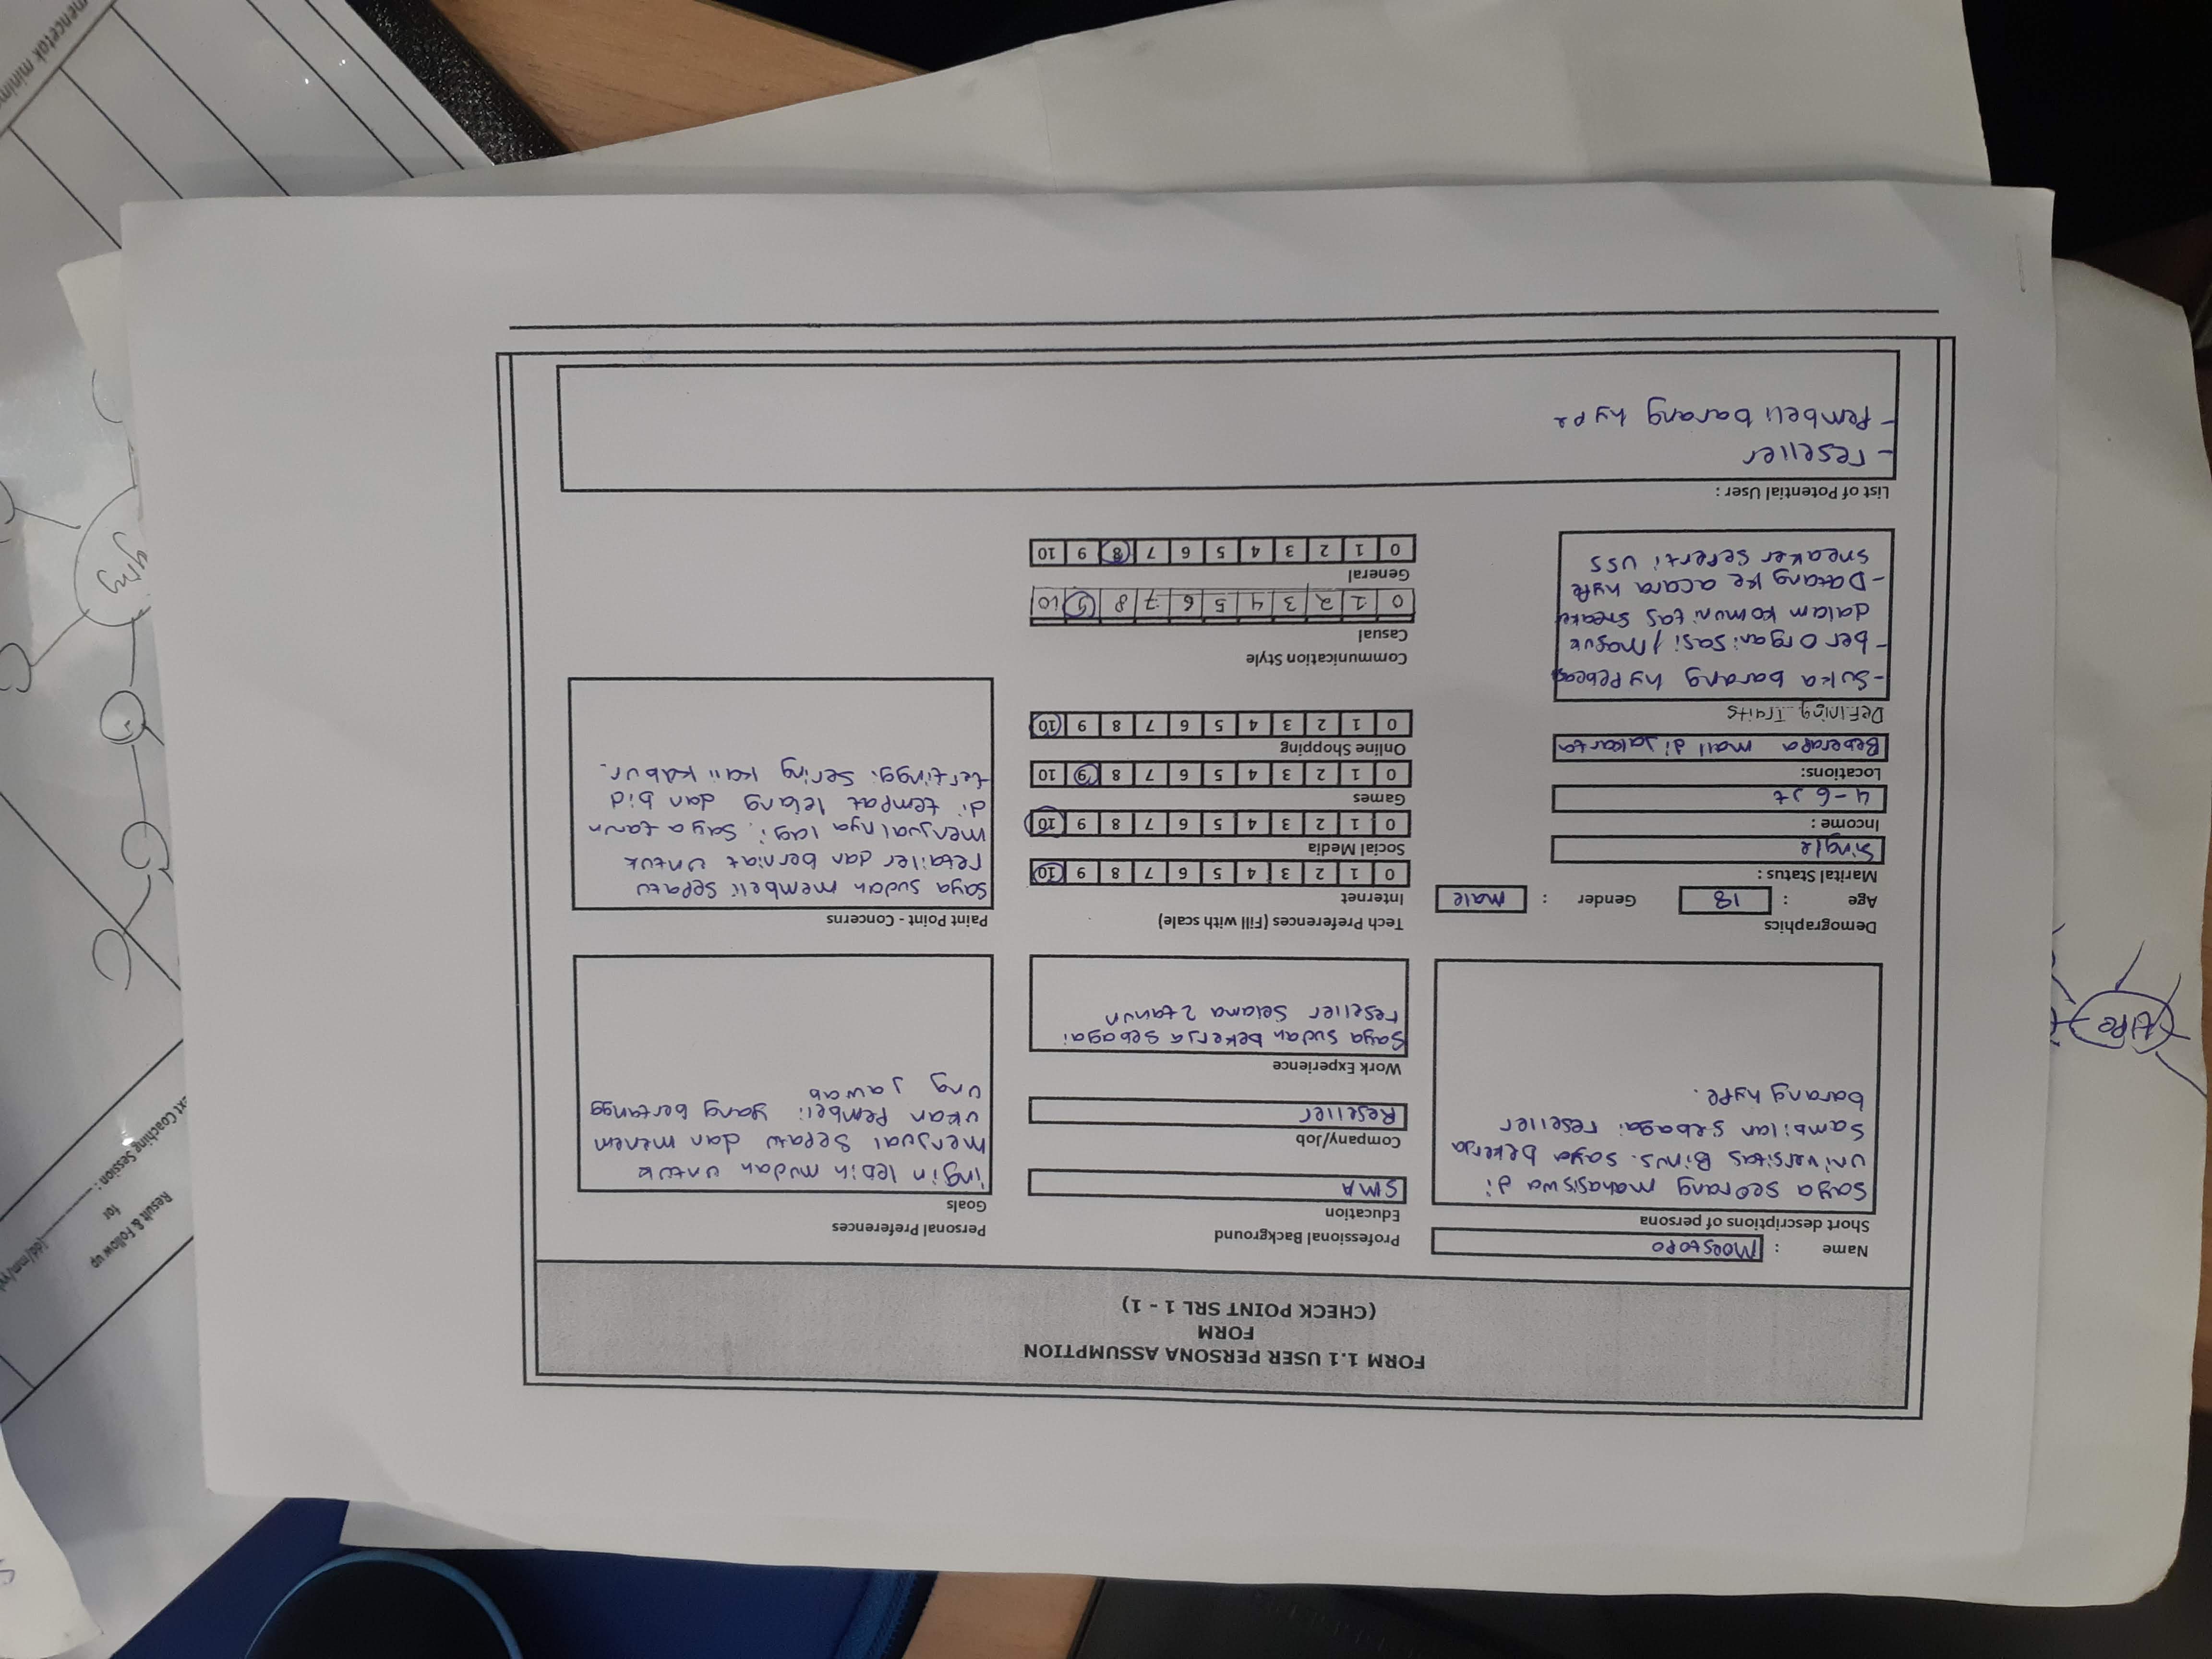 FORM 1.1 USER PERSONA ASSUMPTION
FORM
(CHECK POINT SRL 1 - 1)
Name : Moestopo
Short descriptions of persona
Saya seorang mahasiswa di
Universitas Binus. saya bekerja
Sambilan sebagai reseller
barang hype.
Demographics
Age : 18 Gender : Male
Marital Status :
Single
Income :
4-6 Jt
Locations:
Beberapa mall di Jakarta
Defining Traits
- Suka barang hypebeast
- ber organisasi / masuk
dalam komunitas sneaker
- Datang ke acara hype
sneaker seperti USS
Professional Background
Education
SMA
Company/Job
Reseller
Work Experience
Saya sudah bekerja sebagai
reseller selama 2 tahun
Tech Preferences (Fill with scale)
Internet
0 1 2 3 4 5 6 7 8 9 10
Social Media
0 1 2 3 4 5 6 7 8 9 10
Games
0 1 2 3 4 5 6 7 8 9 10
Online Shopping
0 1 2 3 4 5 6 7 8 9 10
Communication Style
Casual
0 1 2 3 4 5 6 7 8 9 10
General
0 1 2 3 4 5 6 7 8 9 10
Personal Preferences
Goals
ingin lebih mudah untuk
menjual sepatu dan menem
ukan pembeli yang bertangg
ung jawab
Paint Point - Concerns
Saya sudah membeli sepatu
retailer dan berniat untuk
menjualnya lagi. Saya taruh
di tempat lelang dan bid
tertinggi sering kali kabur.
List of Potential User :
- reseller
- Pembeli barang hype
Result & Follow up
for
ext Coaching Session :
mencetak minim